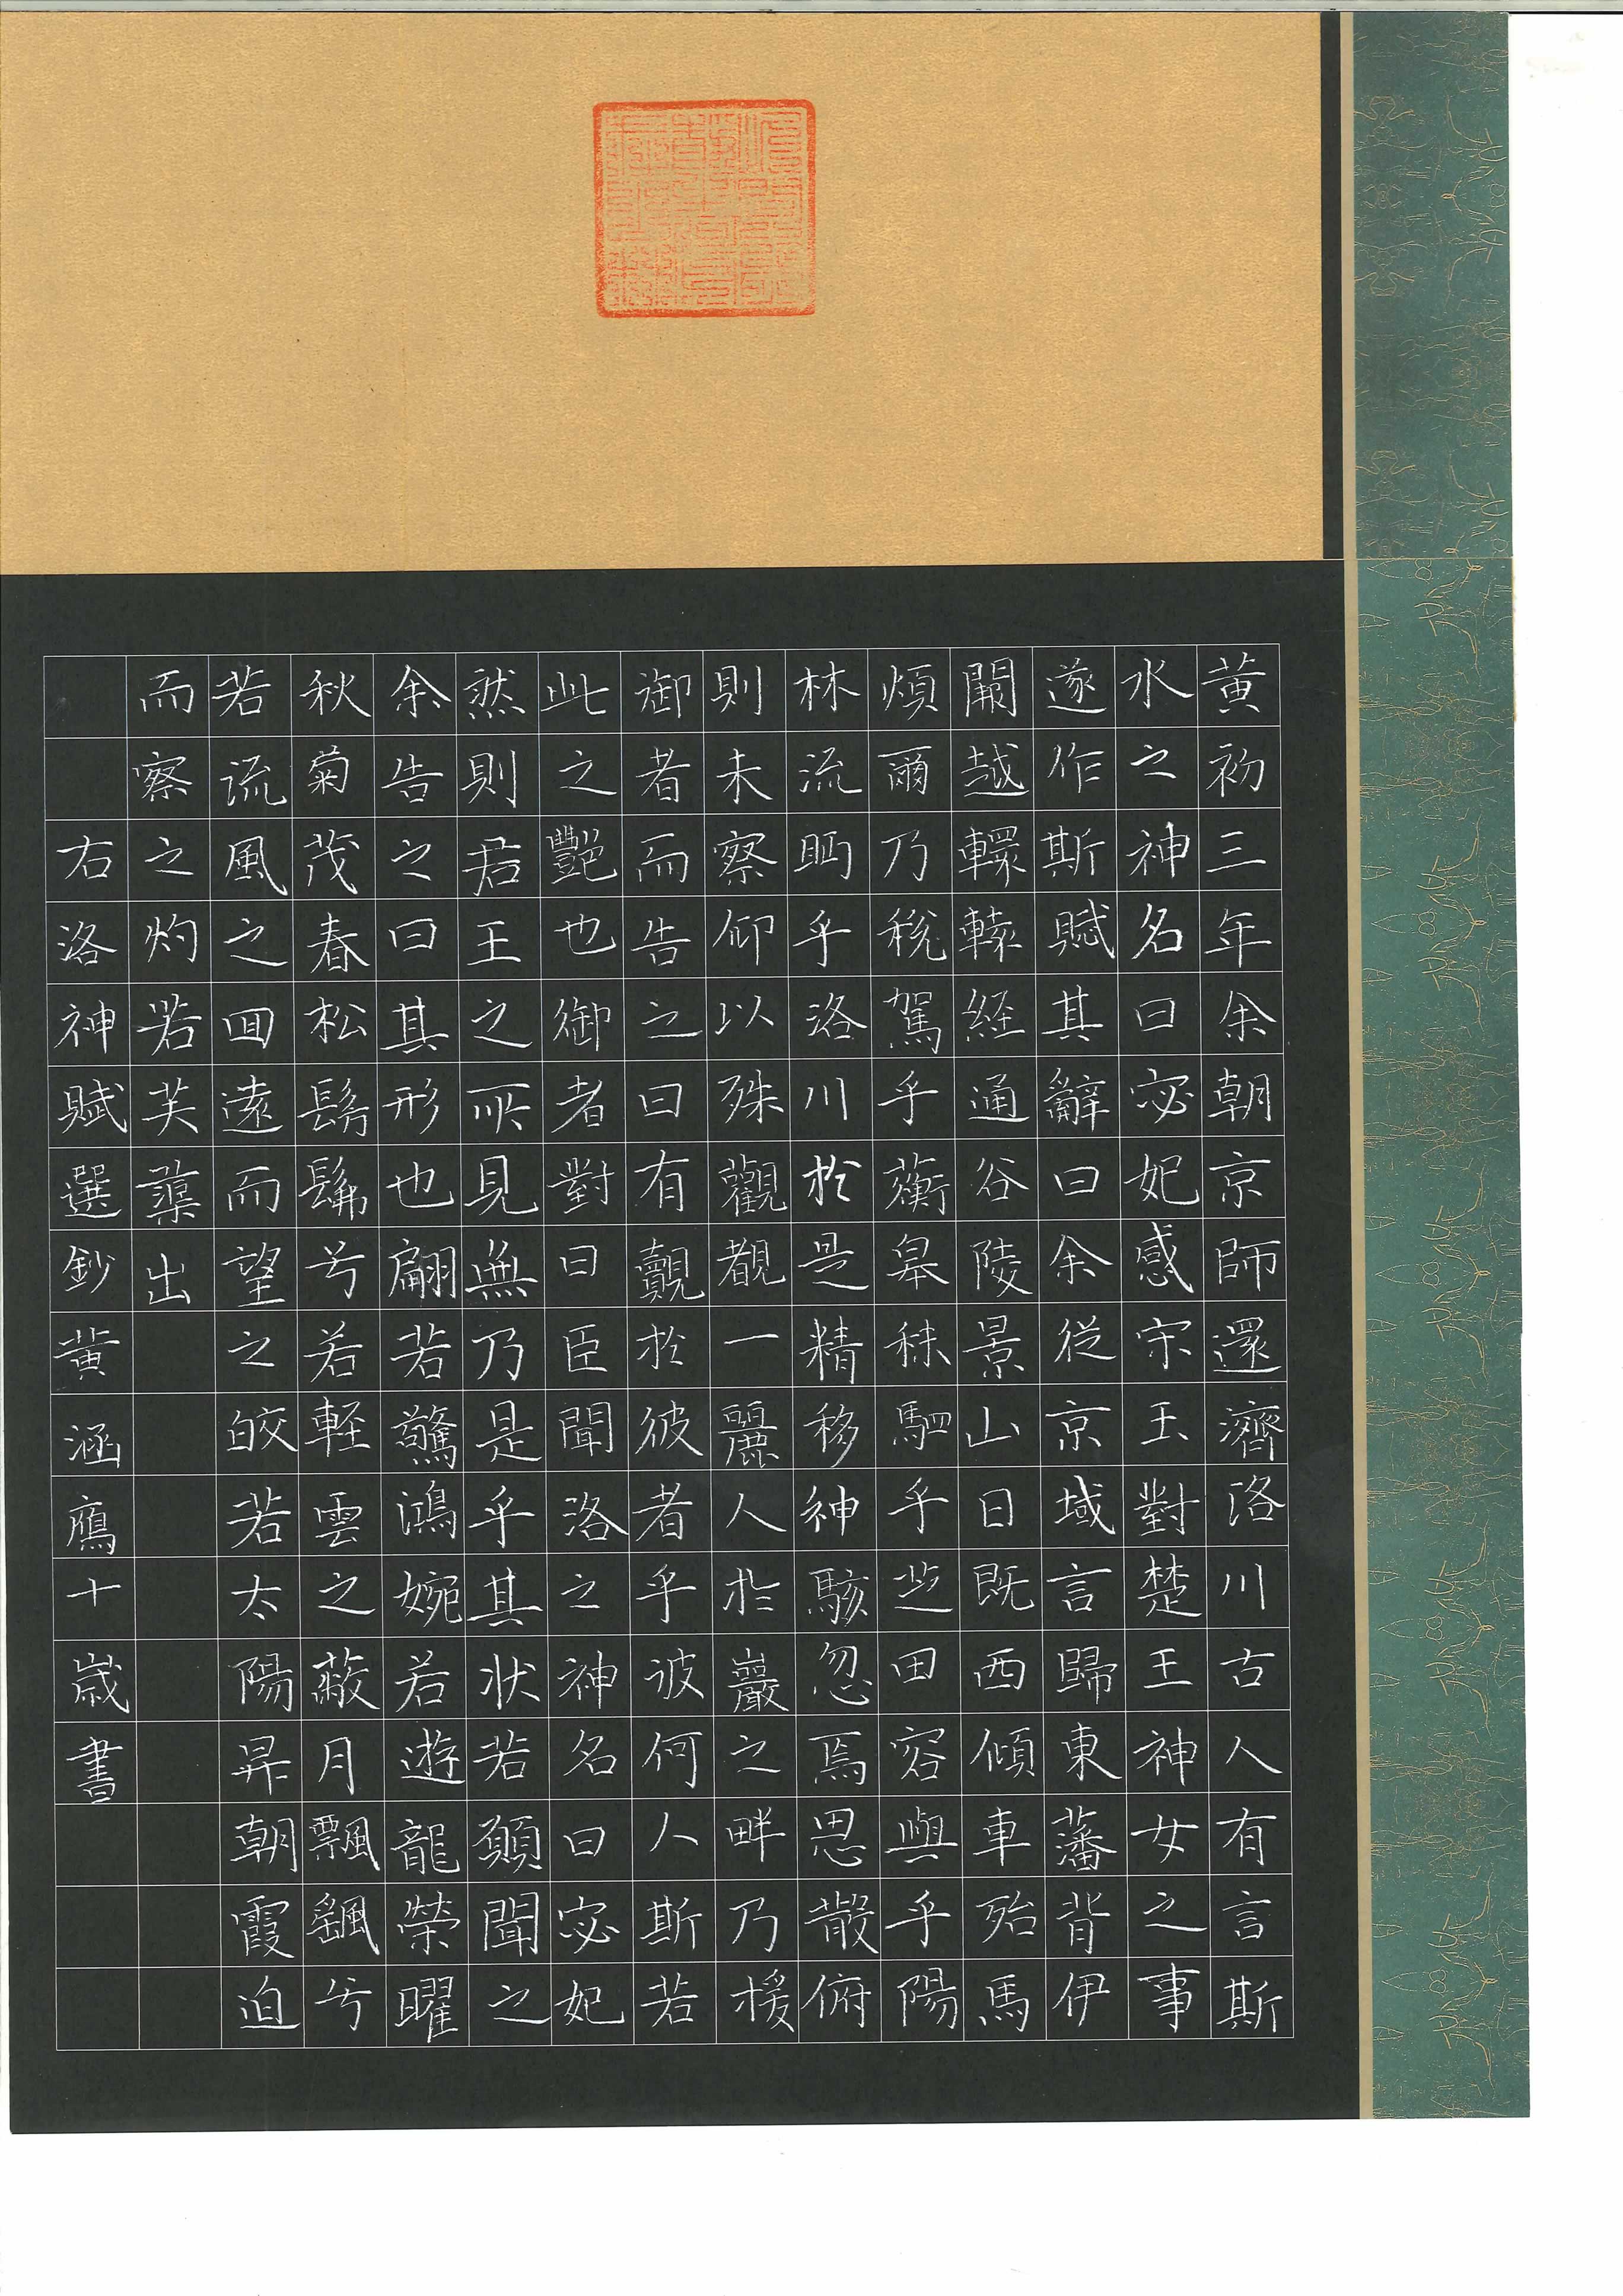 黃初三年余朝京師還濟洛川古人有言斯
水之神名曰宓妃感宋玉對楚王神女之事
遂作斯賦其辭曰余從京域言歸東藩背伊
闕越轘轅經通谷陵景山日既西傾車殆馬
煩爾乃稅駕乎蘅皋秣駟乎芝田容與乎陽
林流眄乎洛川於是精移神駭忽焉思散俯
則未察仰以殊觀覩一麗人於巖之畔乃援
御者而告之曰有覿於彼者乎彼何人斯若
此之豔也御者對曰臣聞洛之神名曰宓妃
然則君王之所見無乃是乎其狀若顏聞之
余告之曰其形也翩若驚鴻婉若遊龍榮曜
秋菊茂春松髣髴兮若輕雲之蔽月飄颻兮
若流風之回遠而望之皎若太陽昇朝霞迫
而察之灼若芙蕖出
右洛神賦選鈔黃涵鷹十歲書